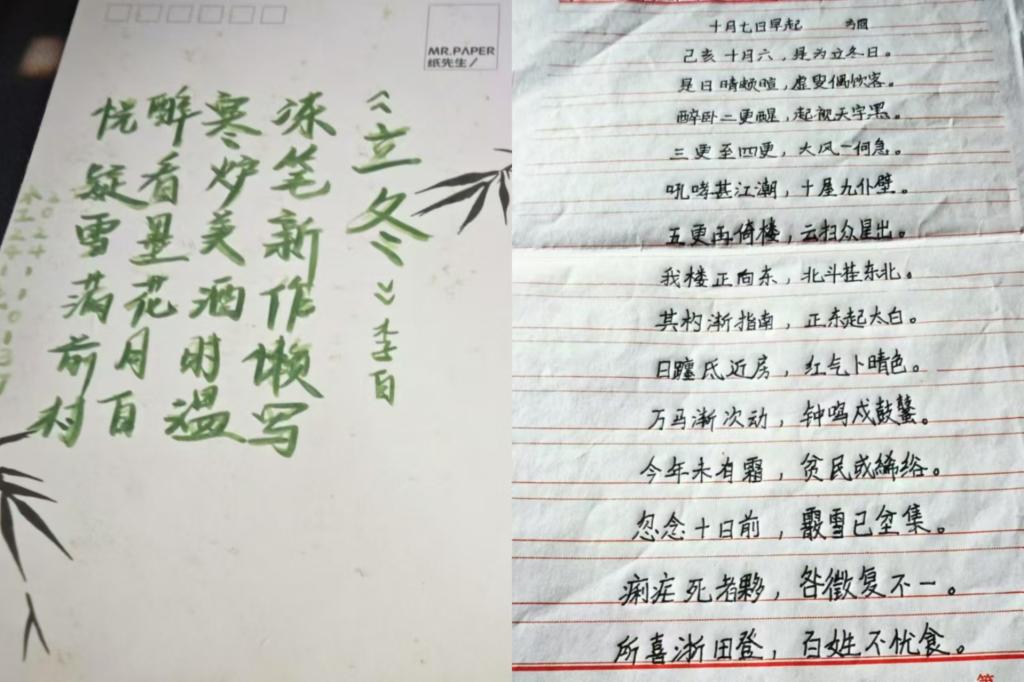 MR.PAPER
纸先生/
《立冬》李白
冻笔新作懒写
寒炉美酒时温
醉看墨花月白
恍疑雪满前村
十月七日早起 方回
己亥十月六，是为立冬日。
是日晴颇暄，虚叟偶饮客。
醉卧二更醒，起视天宇黑。
三更至四更，大风一何急。
吼哮甚江潮，十屋九仆壁。
五更再倚楼，云扫众星出。
我楼正向东，北斗挂东北。
其杓渐指南，正东起太白。
日躔氐近房，红气卜晴色。
万马渐次动，钟鸣戍鼓鼜。
今年未有霜，贫民或絺绤。
忽念十日前，霰雪已坌集。
痢疟死者夥，咎徵复不一。
所喜浙田登，百姓不忧食。